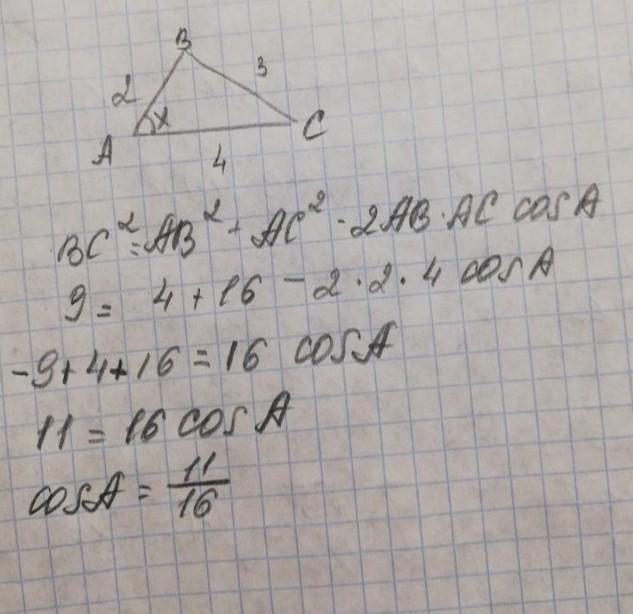 B
2
3
x
A
C
4
BC² = AB² + AC² - 2AB · AC cosA
9 = 4 + 16 - 2 · 2 · 4 cosA
-9 + 4 + 16 = 16 cosA
11 = 16 cosA
cosA = 11/16